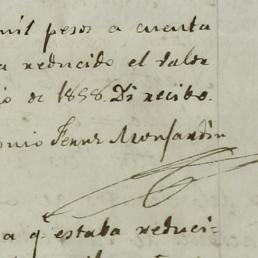 mil pesos a cuenta
a reducido el valor
io de 1858. Di recibo.
onio Ferrer Monjardin
a q. estaba reduci-